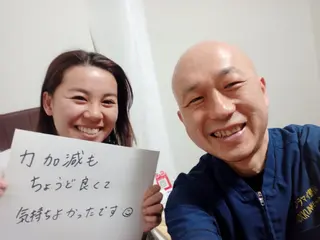 力加減も
ちょうど良くて
気持ちよかったです☺